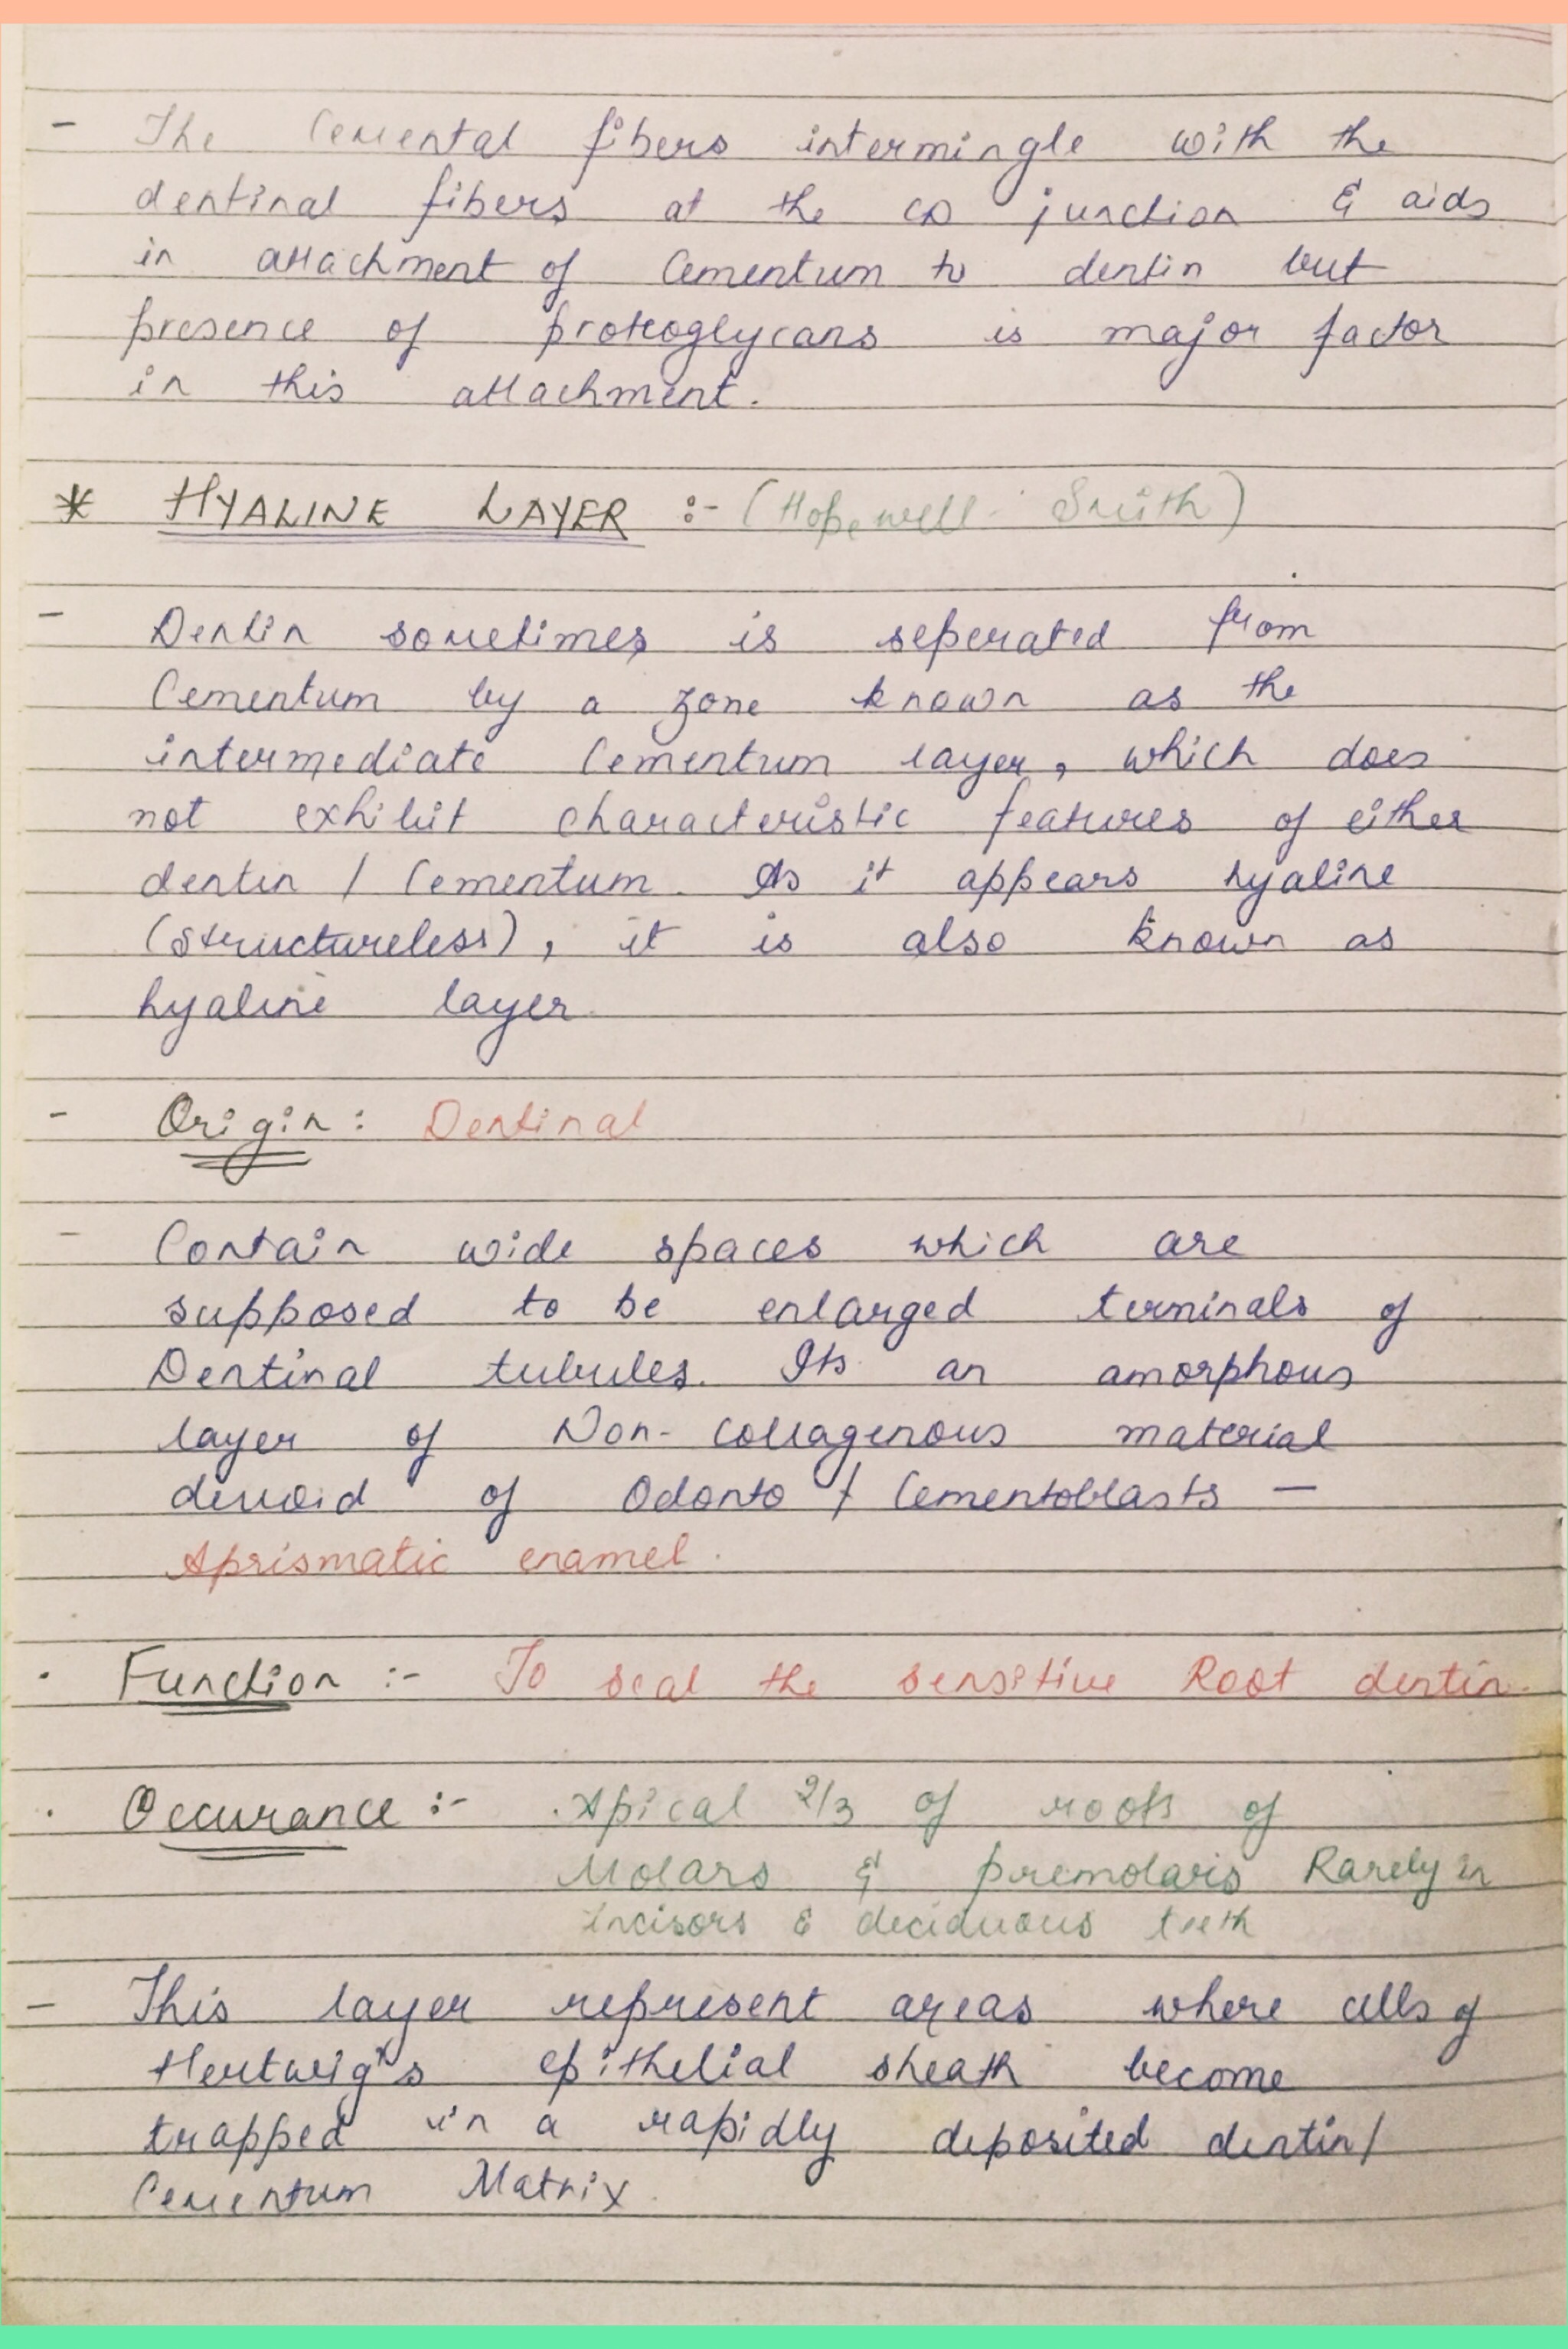 - The Cemental fibers intermingle with the
dentinal fibers at the CD junction & aids
in attachment of Cementum to dentin but
presence of proteoglycans is major factor
in this attachment.
* HYALINE LAYER :- (Hopewell - Smith)
- Dentin sometimes is seperated from
Cementum by a zone known as the
intermediate Cementum layer, which does
not exhibit characteristic features of either
dentin / Cementum. As it appears hyaline
(structureless), it is also known as
hyaline layer.
- Origin: Dentinal
- Contain wide spaces which are
supposed to be enlarged terminals of
Dentinal tubules. Its an amorphous
layer of Non-collagenous material
devoid of Odonto / Cementoblasts -
Aprismatic enamel.
. Function :- To seal the sensitive Root dentin.
. Occurance :- .Apical 2/3 of roots of
Molars & premolars Rarely in
incisors & deciduous teeth
- This layer represent areas where cells of
Hertwig's epithelial sheath become
trapped in a rapidly deposited dentin/
Cementum Matrix.